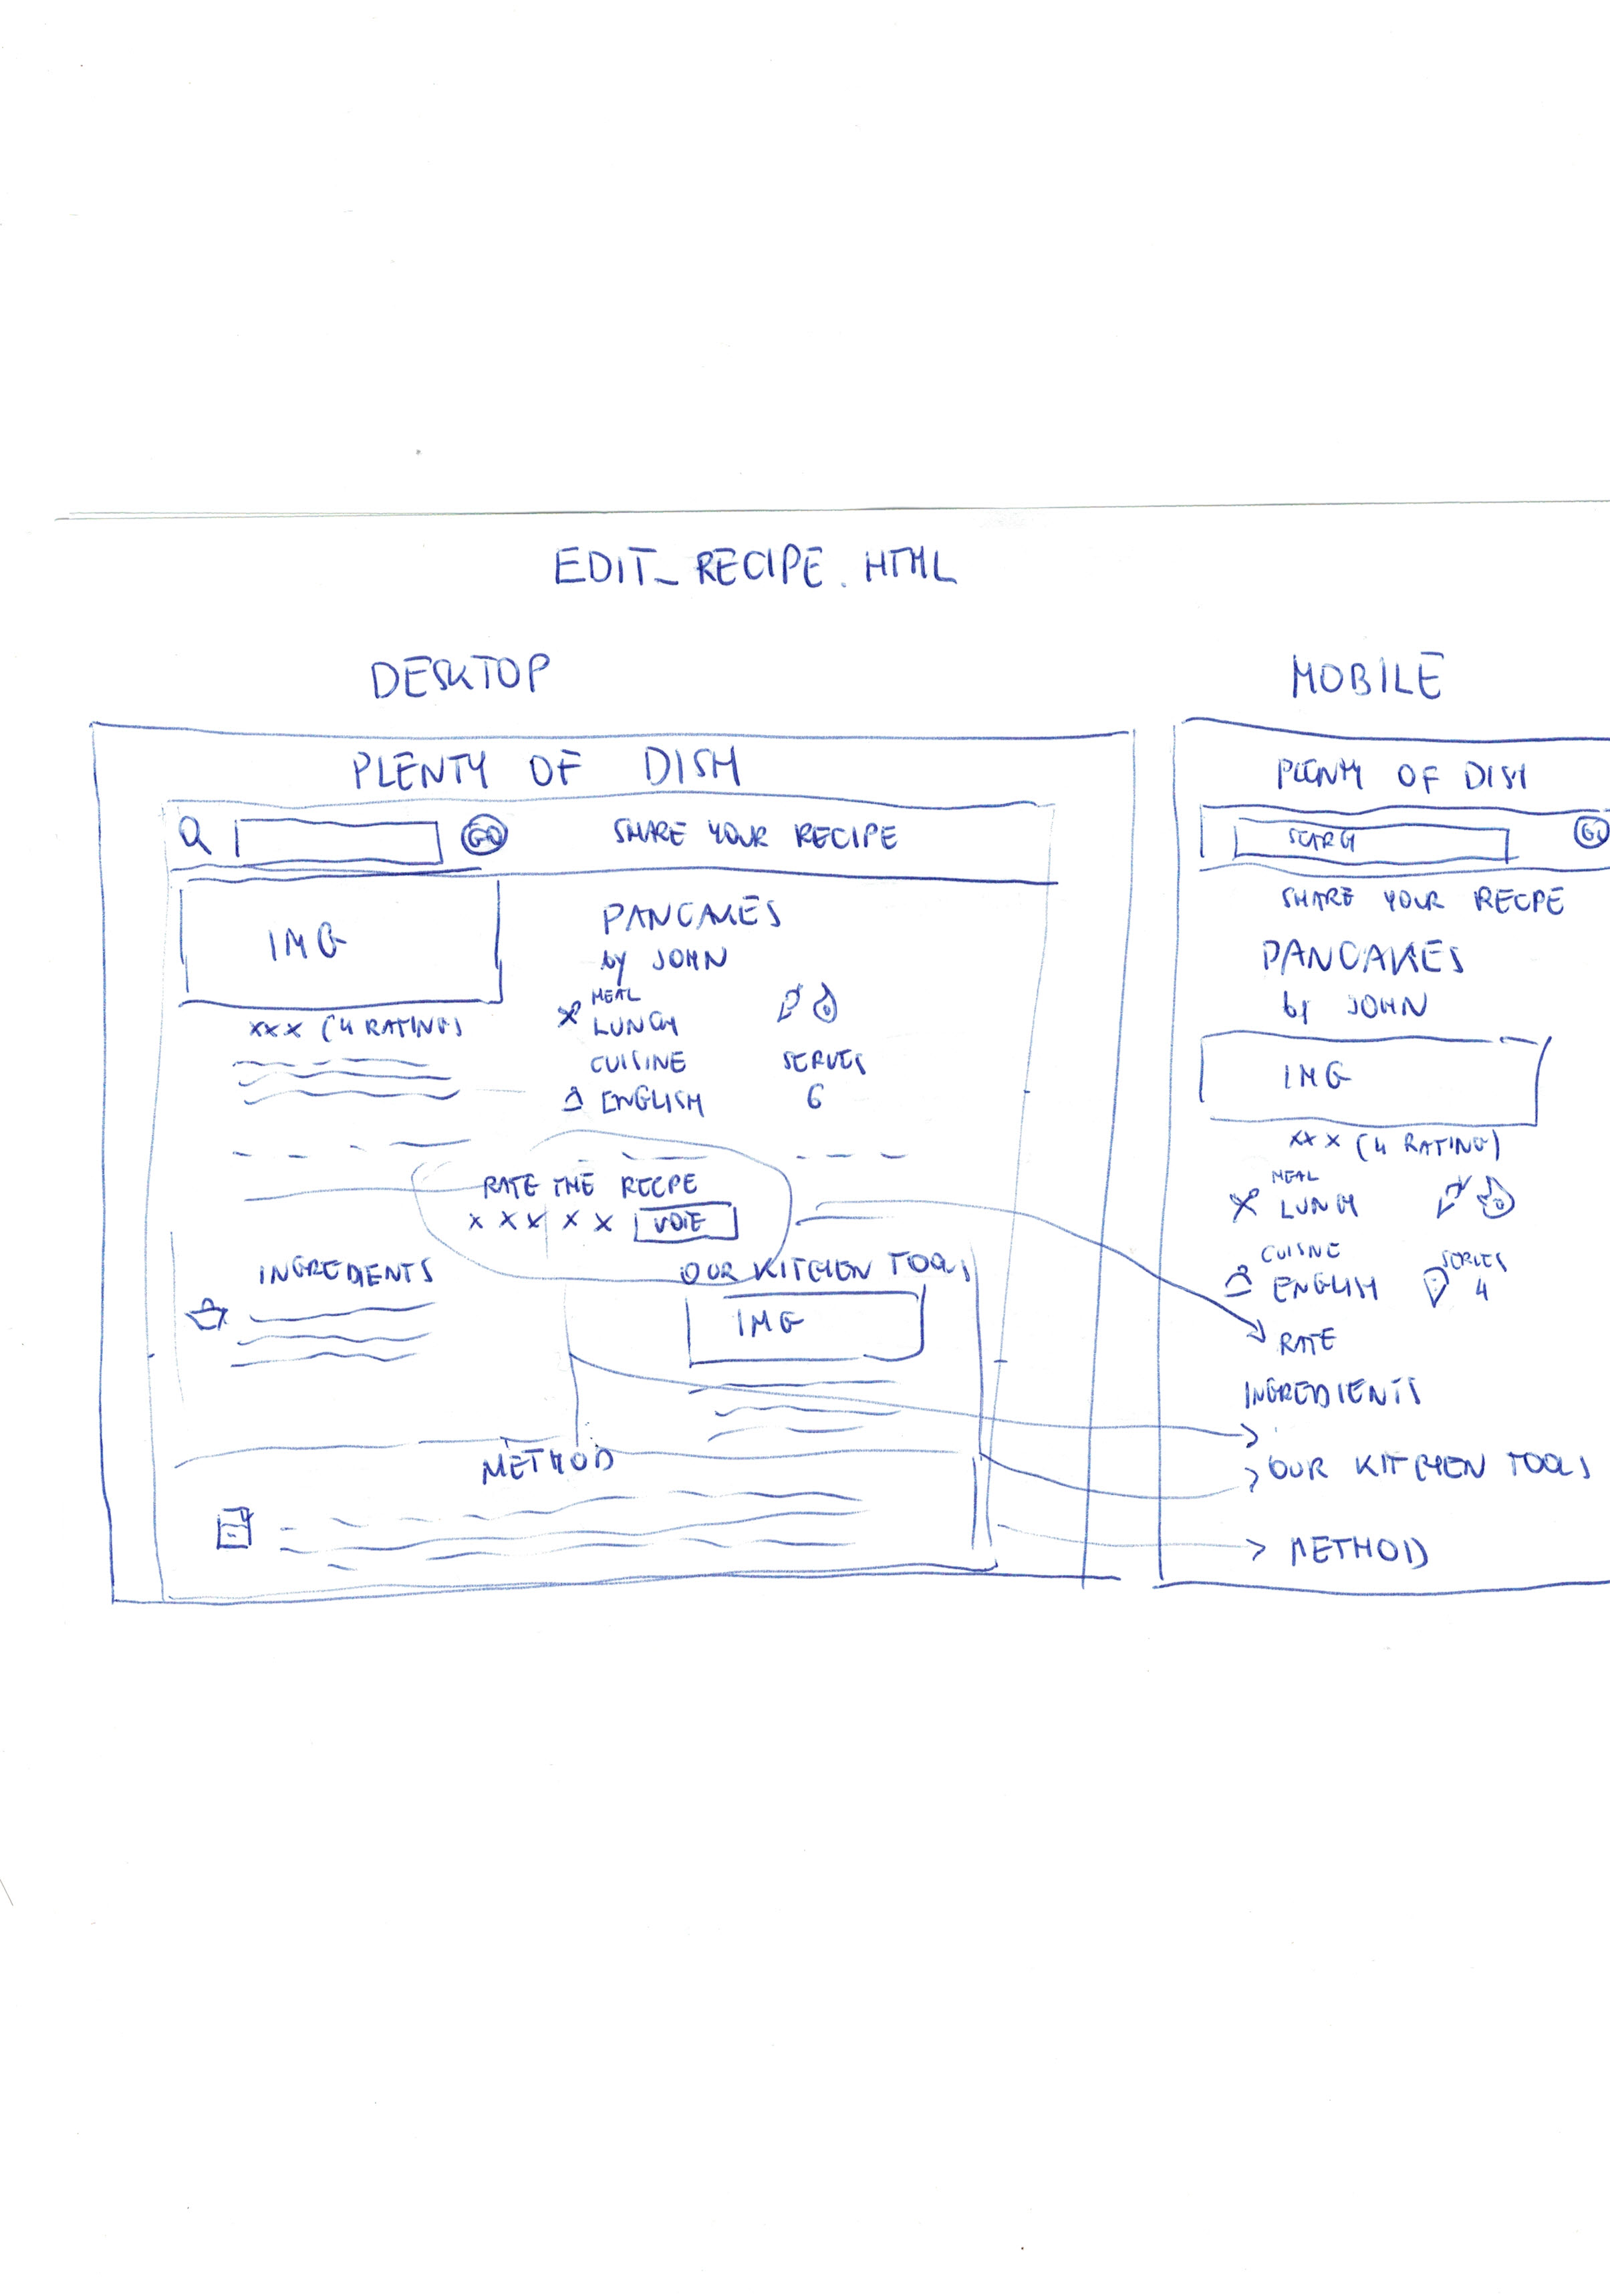 EDIT_RECIPE.HTML
DESKTOP
PLENTY OF DISH
GO SHARE YOUR RECIPE
IMG
PANCAKES
by JOHN
MEAL
LUNCH
XXX (4 RATING)
CUISINE SERVES
ENGLISH 6
RATE THE RECPE
X X X X X VOTE
INGREDIENTS OUR KITCHEN TOOLS
IMG
METHOD
MOBILE
PLENTY OF DISH
GO
SHARE YOUR RECPE
PANCAKES
by JOHN
IMG
XXX (4 RATING)
MEAL
LUNCH
CUISINE
ENGLISH 4
RATE
INGREDIENTS
OUR KITCHEN TOOLS
METHOD